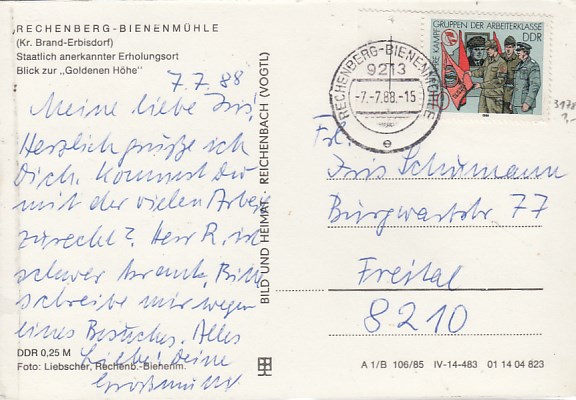 RECHENBERG-BIENENMÜHLE
(Kr. Brand-Erbisdorf)
Staatlich anerkannter Erholungsort
Blick zur „Goldenen Höhe"
7.7.88
Meine liebe Iris,
Herzlich grüße ich
Dich. Kommst Du
mit der vielen Arbeit
zurecht? Herr R. ist
schwer krank, Bitte
schreibe mir wegen
eines Besuches. Alles
Liebe! Deine
Großmutti
DDR 0,25 M
Foto: Liebscher, Rechenb.-Bienenm.
BILD UND HEIMAT · REICHENBACH (VOGTL)
KAMPFGRUPPEN DER ARBEITERKLASSE
DDR
RECHENBERG-BIENENMÜHLE
9213
-7.-7.88.-15
e
Fr.
Iris Schumann
Burgwartstr 77
Freital
8210
A 1/B 106/85 IV-14-483 01 14 04 823